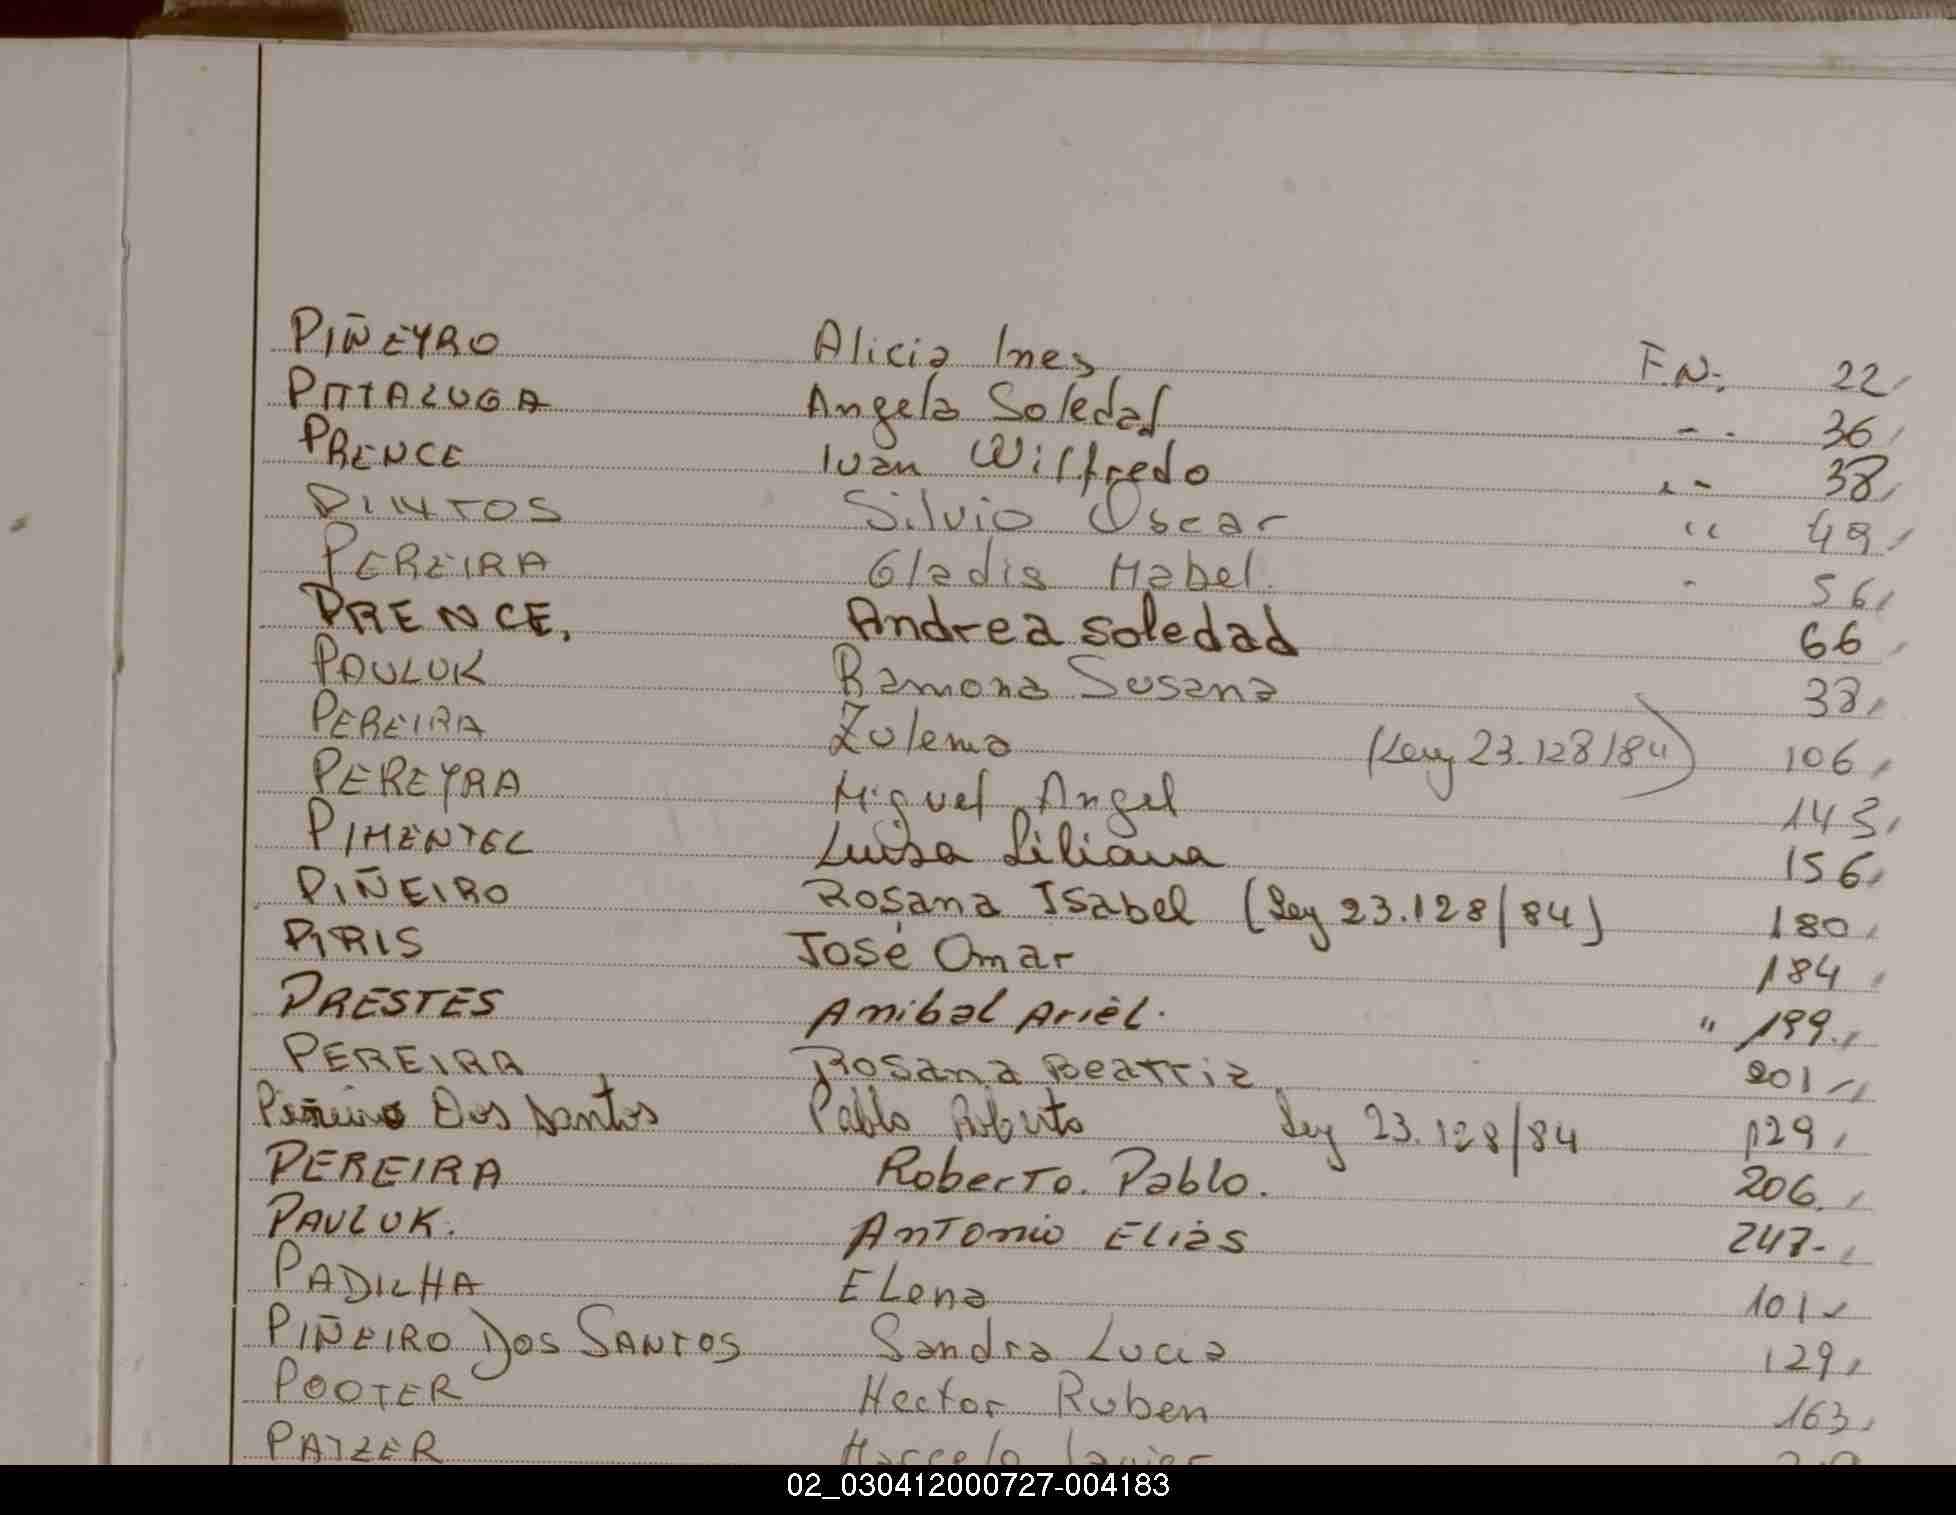 PIÑEYRO Alicia Ines F.N. 22
PITTALUGA Angela Soledad - - 36
PRENCE Ivan Wilfredo " 38
PINTOS Silvio Oscar " 49
PEREIRA Gladis Mabel. " 56
PRENCE, Andrea Soledad 66
PAULUK Ramona Susana 38
PEREIRA Zulema (Ley 23.128/84) 106
PEREYRA Miguel Angel 143
PIMENTEL Luisa Liliana 156
PIÑEIRO Rosana Isabel (Ley 23.128/84) 180
PIRIS José Omar 184
PRESTES Anibal Ariel. " 199.
PEREIRA Rosana Beatriz 201
Piñeiro Dos Santos Pablo Roberto Ley 23.128/84 129
PEREIRA Roberto. Pablo. 206.
PAULUK. Antonio Elias 247-
PADILHA Elena 101
PIÑEIRO DOS SANTOS Sandra Lucia 129
POOTER Hector Ruben 163
PATZER Marcelo Javier
02_030412000727-004183